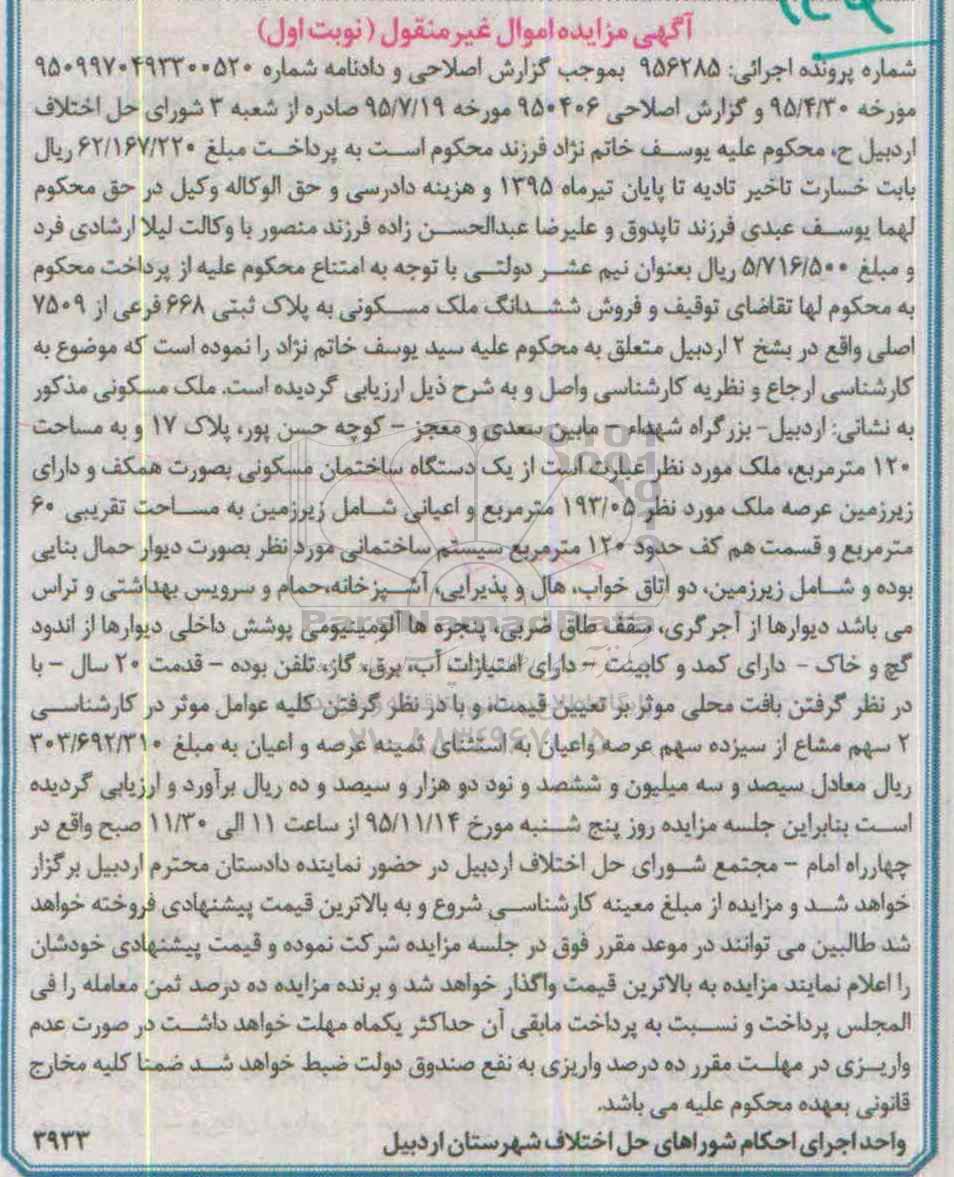 آگهی مزایده اموال غیرمنقول (نوبت اول)
شماره پرونده اجرائی: ۹۵۶۲۸۵ بموجب گزارش اصلاحی و دادنامه شماره ۹۵۰۹۹۷۰۴۹۳۲۰۰۵۲۰
مورخه ۹۵/۴/۳۰ و گزارش اصلاحی ۹۵۰۴۰۶ مورخه ۹۵/۷/۱۹ صادره از شعبه ۳ شورای حل اختلاف
اردبیل ح، محکوم علیه یوسف خاتم نژاد فرزند محکوم است به پرداخت مبلغ ۶۲/۱۶۷/۲۲۰ ریال
بابت خسارت تاخیر تادیه تا پایان تیرماه ۱۳۹۵ و هزینه دادرسی و حق الوکاله وکیل در حق محکوم
لهما یوسف عبدی فرزند تاپدوق و علیرضا عبدالحسن زاده فرزند منصور با وکالت لیلا ارشادی فرد
و مبلغ ۵/۷۱۶/۵۰۰ ریال بعنوان نیم عشر دولتی با توجه به امتناع محکوم علیه از پرداخت محکوم
به محکوم لها تقاضای توقیف و فروش ششدانگ ملک مسکونی به پلاک ثبتی ۶۶۸ فرعی از ۷۵۰۹
اصلی واقع در بشخ ۲ اردبیل متعلق به محکوم علیه سید یوسف خاتم نژاد را نموده است که موضوع به
کارشناسی ارجاع و نظریه کارشناسی واصل و به شرح ذیل ارزیابی گردیده است. ملک مسکونی مذکور
به نشانی: اردبیل- بزرگراه شهداء - مابین سعدی و معجز - کوچه حسن پور، پلاک ۱۷ و به مساحت
۱۲۰ مترمربع، ملک مورد نظر عبارت است از یک دستگاه ساختمان مسکونی بصورت همکف و دارای
زیرزمین عرصه ملک مورد نظر ۱۹۳/۰۵ مترمربع و اعیانی شامل زیرزمین به مساحت تقریبی ۶۰
مترمربع و قسمت هم کف حدود ۱۲۰ مترمربع سیستم ساختمانی مورد نظر بصورت دیوار حمال بنایی
بوده و شامل زیرزمین، دو اتاق خواب، هال و پذیرایی، آشپزخانه،حمام و سرویس بهداشتی و تراس
می باشد دیوارها از آجرگری، سقف طاق ضربی، پنجره ها آلومینیومی پوشش داخلی دیوارها از اندود
گچ و خاک - دارای کمد و کابینت - دارای امتیازات آب، برق، گاز، تلفن بوده - قدمت ۲۰ سال - با
در نظر گرفتن بافت محلی موثر بر تعیین قیمت، و با در نظر گرفتن کلیه عوامل موثر در کارشناسی
۲ سهم مشاع از سیزده سهم عرصه واعیان به استثنای ثمینه عرصه و اعیان به مبلغ ۳۰۳/۶۹۲/۳۱۰
ریال معادل سیصد و سه میلیون و ششصد و نود دو هزار و سیصد و ده ریال برآورد و ارزیابی گردیده
است بنابراین جلسه مزایده روز پنج شنبه مورخ ۹۵/۱۱/۱۴ از ساعت ۱۱ الی ۱۱/۳۰ صبح واقع در
چهارراه امام - مجتمع شورای حل اختلاف اردبیل در حضور نماینده دادستان محترم اردبیل برگزار
خواهد شد و مزایده از مبلغ معینه کارشناسی شروع و به بالاترین قیمت پیشنهادی فروخته خواهد
شد طالبین می توانند در موعد مقرر فوق در جلسه مزایده شرکت نموده و قیمت پیشنهادی خودشان
را اعلام نمایند مزایده به بالاترین قیمت واگذار خواهد شد و برنده مزایده ده درصد ثمن معامله را فی
المجلس پرداخت و نسبت به پرداخت مابقی آن حداکثر یکماه مهلت خواهد داشت در صورت عدم
واریزی در مهلت مقرر ده درصد واریزی به نفع صندوق دولت ضبط خواهد شد ضمنا کلیه مخارج
قانونی بعهده محکوم علیه می باشد.
واحد اجرای احکام شوراهای حل اختلاف شهرستان اردبیل ۳۹۳۳